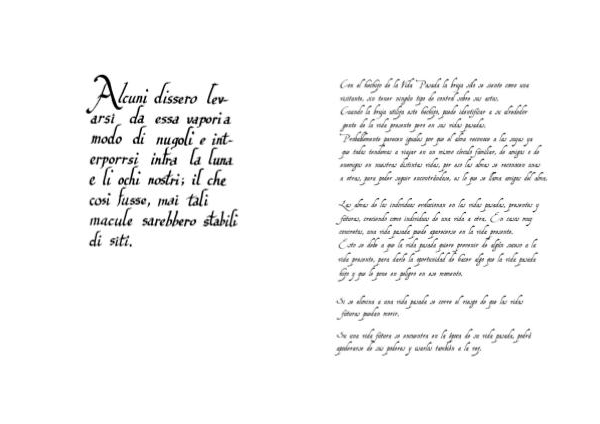 Alcuni dissero lev-
arsi da essa vaporia
modo di nugoli e int-
erporrsi infra la luna
e li ochi nostri; il che
cosi fusse, mai tali
macule sarebbero stabili
di siti.
Con el hechizo de la Vida Pasada la bruja sólo se siente como una
visitante, sin tener ningún tipo de control sobre sus actos.
Cuando la bruja utiliza este hechizo, puede identificar a su alrededor
gente de la vida presente pero en sus vidas pasadas.
Probablemente parecen iguales por que el alma reconoce a las suyas ya
que todas tendemos a viajar en un mismo círculo familiar, de amigos o de
enemigos en nuestras distintas vidas, por eso las almas se reconocen unas
a otras, para poder seguir encontrándose, es lo que se llama amigos del alma.
Las almas de los individuos evolucionan en las vidas pasadas, presentes y
futuras, creciendo como individuos de una vida a otra. En casos muy
concretos, una vida pasada puede aparecerse en la vida presente.
Esto se debe a que la vida pasada quiere prevenir de algún suceso a la
vida presente, para darle la oportunidad de hacer algo que la vida pasada
hizo y que le pone en peligro en ese momento.
Si se elimina a una vida pasada se corre el riesgo de que las vidas
futuras puedan morir.
Si una vida futura se encuentra en la época de su vida pasada, podrá
apoderarse de sus poderes y usarlos también a la vez.